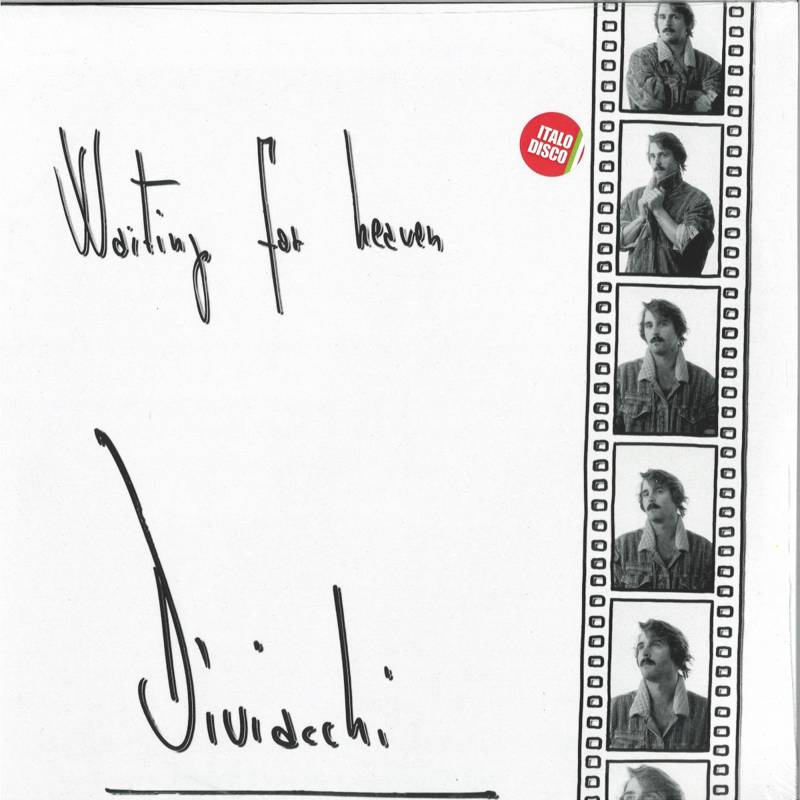 ITALO
DISCO
Waiting for heaven
Dividacchi